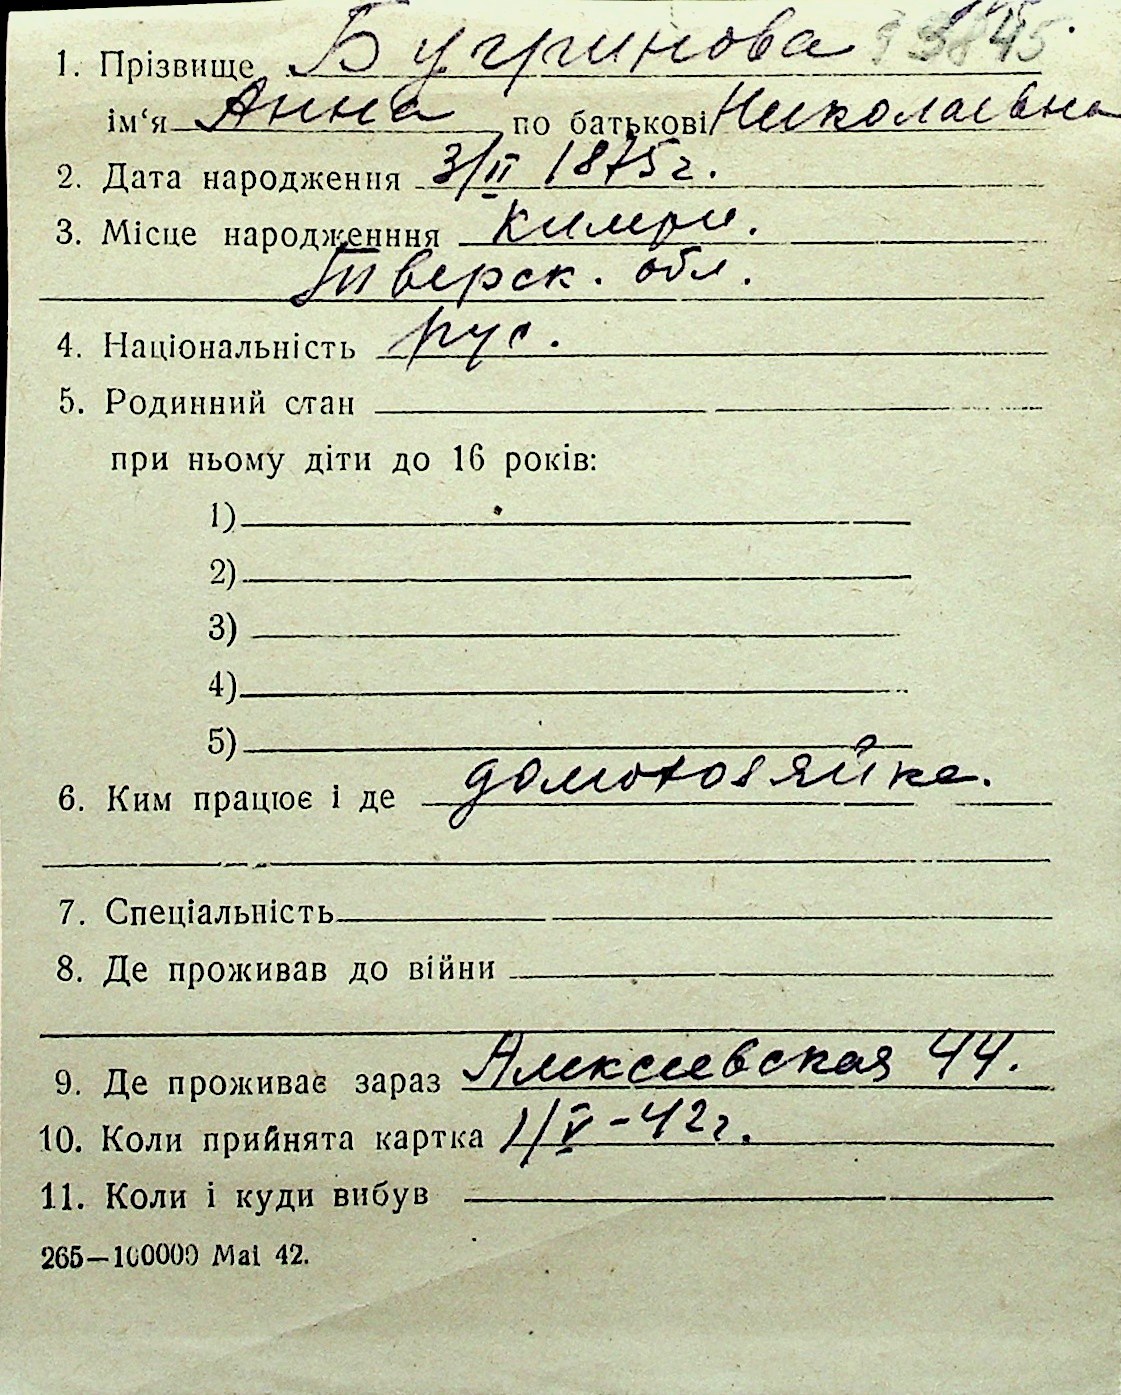 1. Прізвище Бугринова
ім‘я Анна по батькові Николаевна
2. Дата народження 3/II 1875 г.
3. Місце народженння Кимры.
Тверск. обл.
4. Національність рус.
5. Родинний стан
при ньому діти до 16 років:
1)
2)
3)
4)
5)
6. Ким працює і де домохозяйка.
7. Спеціальність
8. Де проживав до війни
9. Де проживає зараз Алексеевская 44.
10. Коли прийнята картка 1/V-42 г.
11. Коли і куди вибув
265—100000 Mai 42.